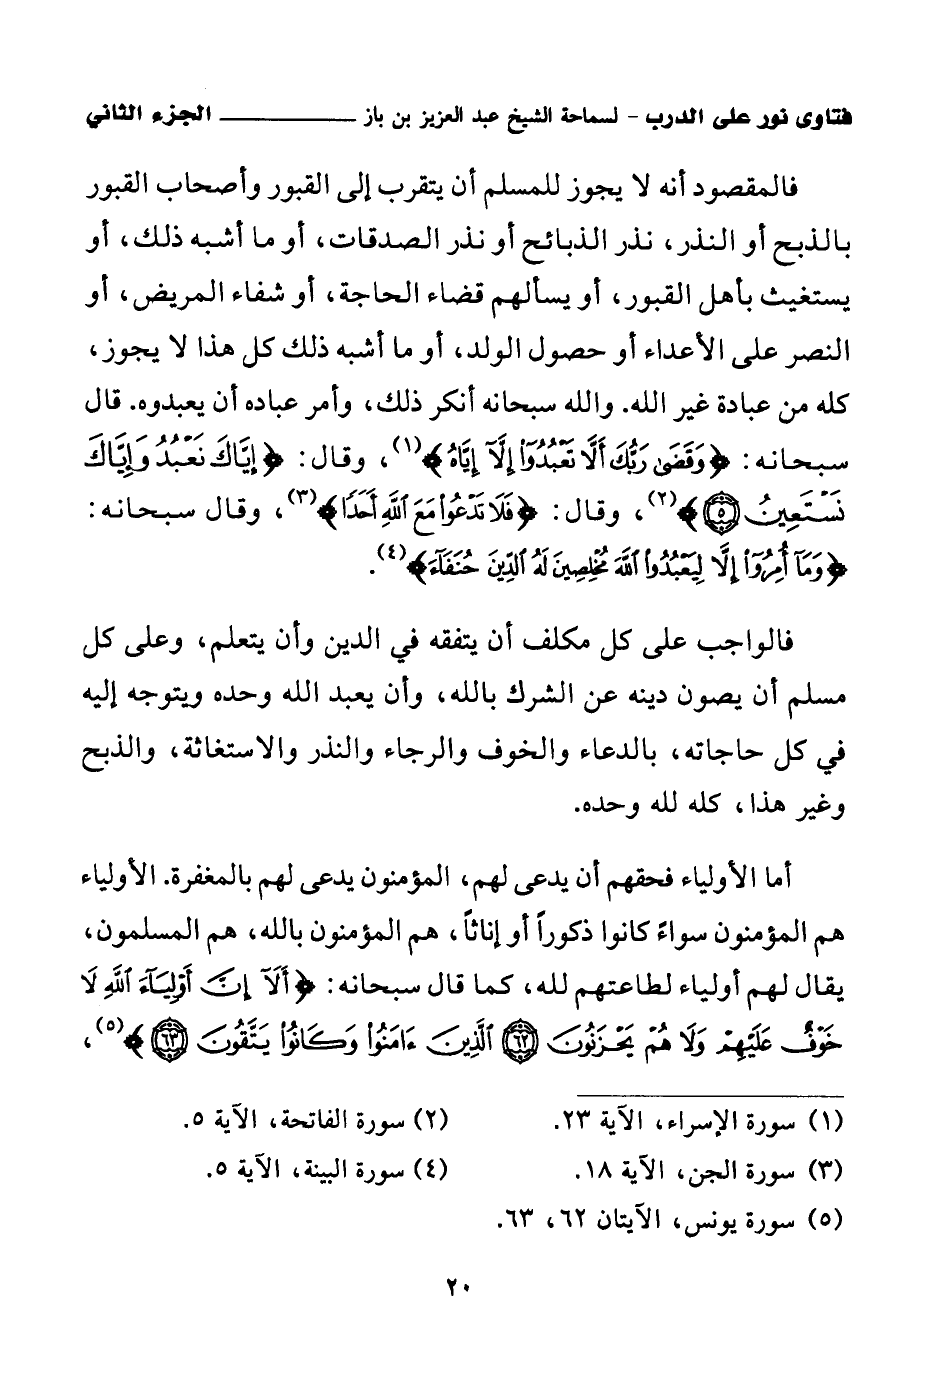 فتاوى نور على الدرب - لسماحة الشيخ عبد العزيز بن باز ــــــــــــــ الجزء الثاني
فالمقصود أنه لا يجوز للمسلم أن يتقرب إلى القبور وأصحاب القبور
بالذبح أو النذر، نذر الذبائح أو نذر الصدقات، أو ما أشبه ذلك، أو
يستغيث بأهل القبور، أو يسألهم قضاء الحاجة، أو شفاء المريض، أو
النصر على الأعداء أو حصول الولد، أو ما أشبه ذلك كل هذا لا يجوز،
كله من عبادة غير الله. والله سبحانه أنكر ذلك، وأمر عباده أن يعبدوه. قال
سبحانه: ﴿وَقَضَىٰ رَبُّكَ أَلَّا تَعْبُدُوٓا۟ إِلَّآ إِيَّاهُ﴾(١)، وقال: ﴿إِيَّاكَ نَعْبُدُ وَإِيَّاكَ
نَسْتَعِينُ ٥﴾(٢)، وقال: ﴿فَلَا تَدْعُوا۟ مَعَ ٱللَّهِ أَحَدًا﴾(٣)، وقال سبحانه:
﴿وَمَآ أُمِرُوٓا۟ إِلَّا لِيَعْبُدُوا۟ ٱللَّهَ مُخْلِصِينَ لَهُ ٱلدِّينَ حُنَفَآءَ﴾(٤).
فالواجب على كل مكلف أن يتفقه في الدين وأن يتعلم، وعلى كل
مسلم أن يصون دينه عن الشرك بالله، وأن يعبد الله وحده ويتوجه إليه
في كل حاجاته، بالدعاء والخوف والرجاء والنذر والاستغاثة، والذبح
وغير هذا، كله لله وحده.
أما الأولياء فحقهم أن يدعى لهم، المؤمنون يدعى لهم بالمغفرة. الأولياء
هم المؤمنون سواءً كانوا ذكوراً أو إناثاً، هم المؤمنون بالله، هم المسلمون،
يقال لهم أولياء لطاعتهم لله، كما قال سبحانه: ﴿أَلَآ إِنَّ أَوْلِيَآءَ ٱللَّهِ لَا
خَوْفٌ عَلَيْهِمْ وَلَا هُمْ يَحْزَنُونَ ٦٢ ٱلَّذِينَ ءَامَنُوا۟ وَكَانُوا۟ يَتَّقُونَ ٦٣﴾(٥)،
(١) سورة الإسراء، الآية ٢٣. (٢) سورة الفاتحة، الآية ٥.
(٣) سورة الجن، الآية ١٨. (٤) سورة البينة، الآية ٥.
(٥) سورة يونس، الآيتان ٦٢، ٦٣.
٢٠